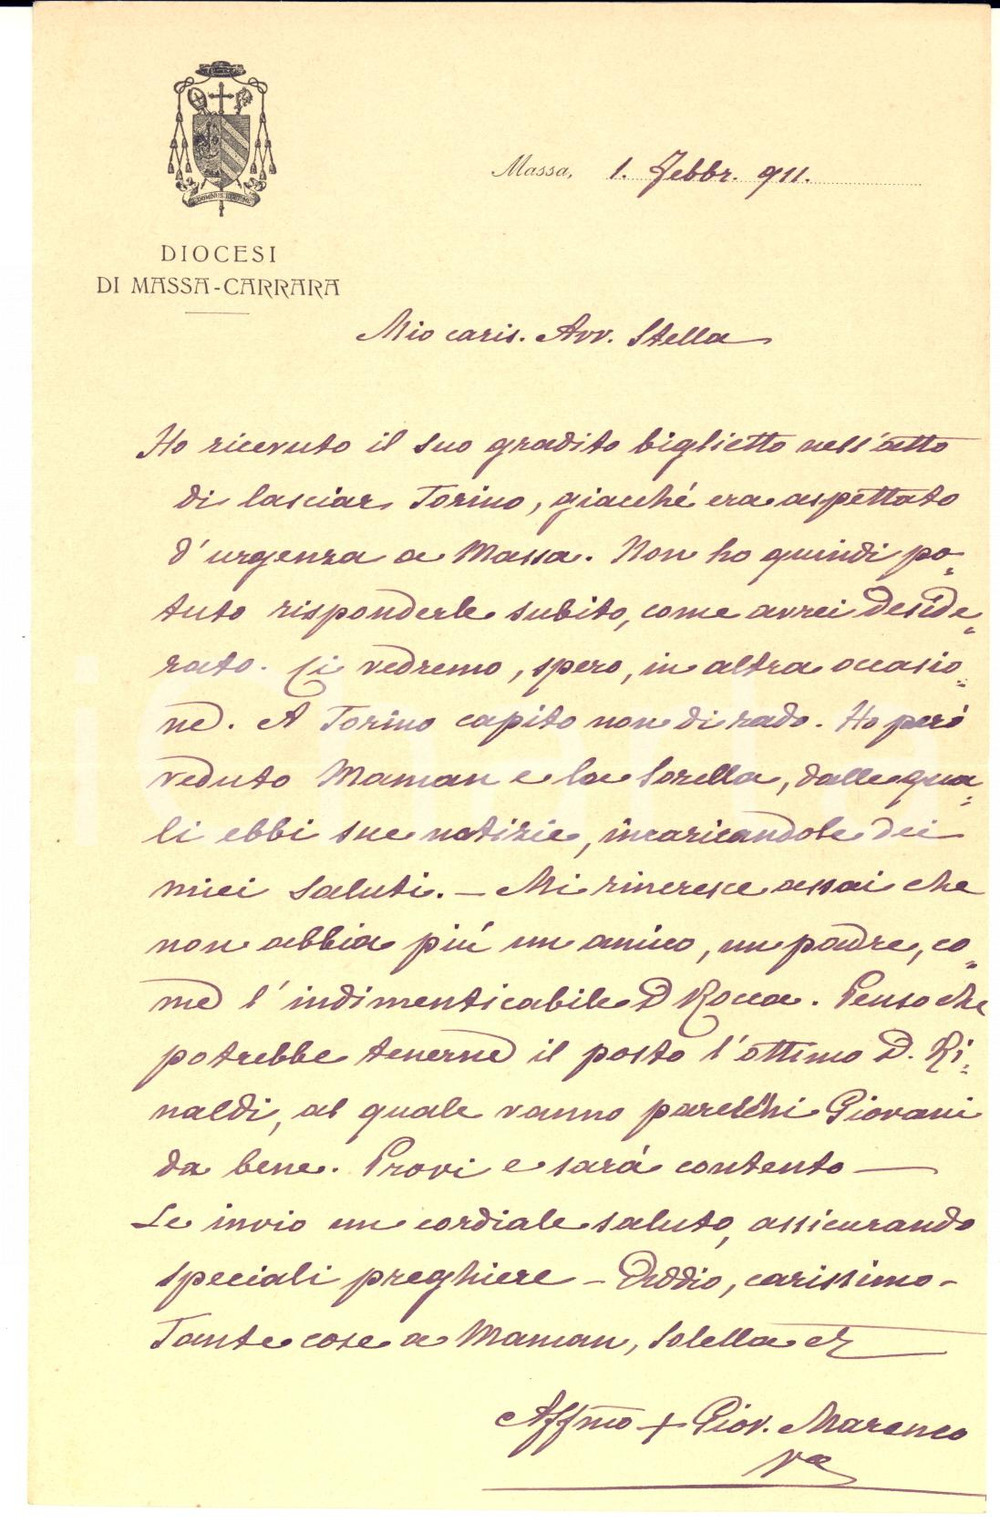 DIOCESI
DI MASSA-CARRARA
Massa, 1. Febbr. 911.
Mio caris. Avv. Stella
Ho ricevuto il suo gradito biglietto nell'atto
di lasciar Torino, giacché era aspettato
d'urgenza a Massa. Non ho quindi po-
tuto risponderle subito, come avrei deside-
rato. Ci vedremo, spero, in altra occasio-
ne. A Torino capito non di rado. Ho però
veduto Maman e la Sorella, dalle qua-
li ebbi sue notizie, incaricandole dei
miei saluti. — Mi rincresce assai che
non abbia più un amico, un padre, co-
me l'indimenticabile D Rocca. Penso che
potrebbe tenerne il posto l'ottimo D. Ri-
naldi, al quale vanno parecchi Giovani
da bene. Provi e sarà contento —
Le invio un cordiale saluto, assicurando
speciali preghiere — Addio, carissimo -
Tante cose a Maman, Solella et
Affmo + Giov. Marenco